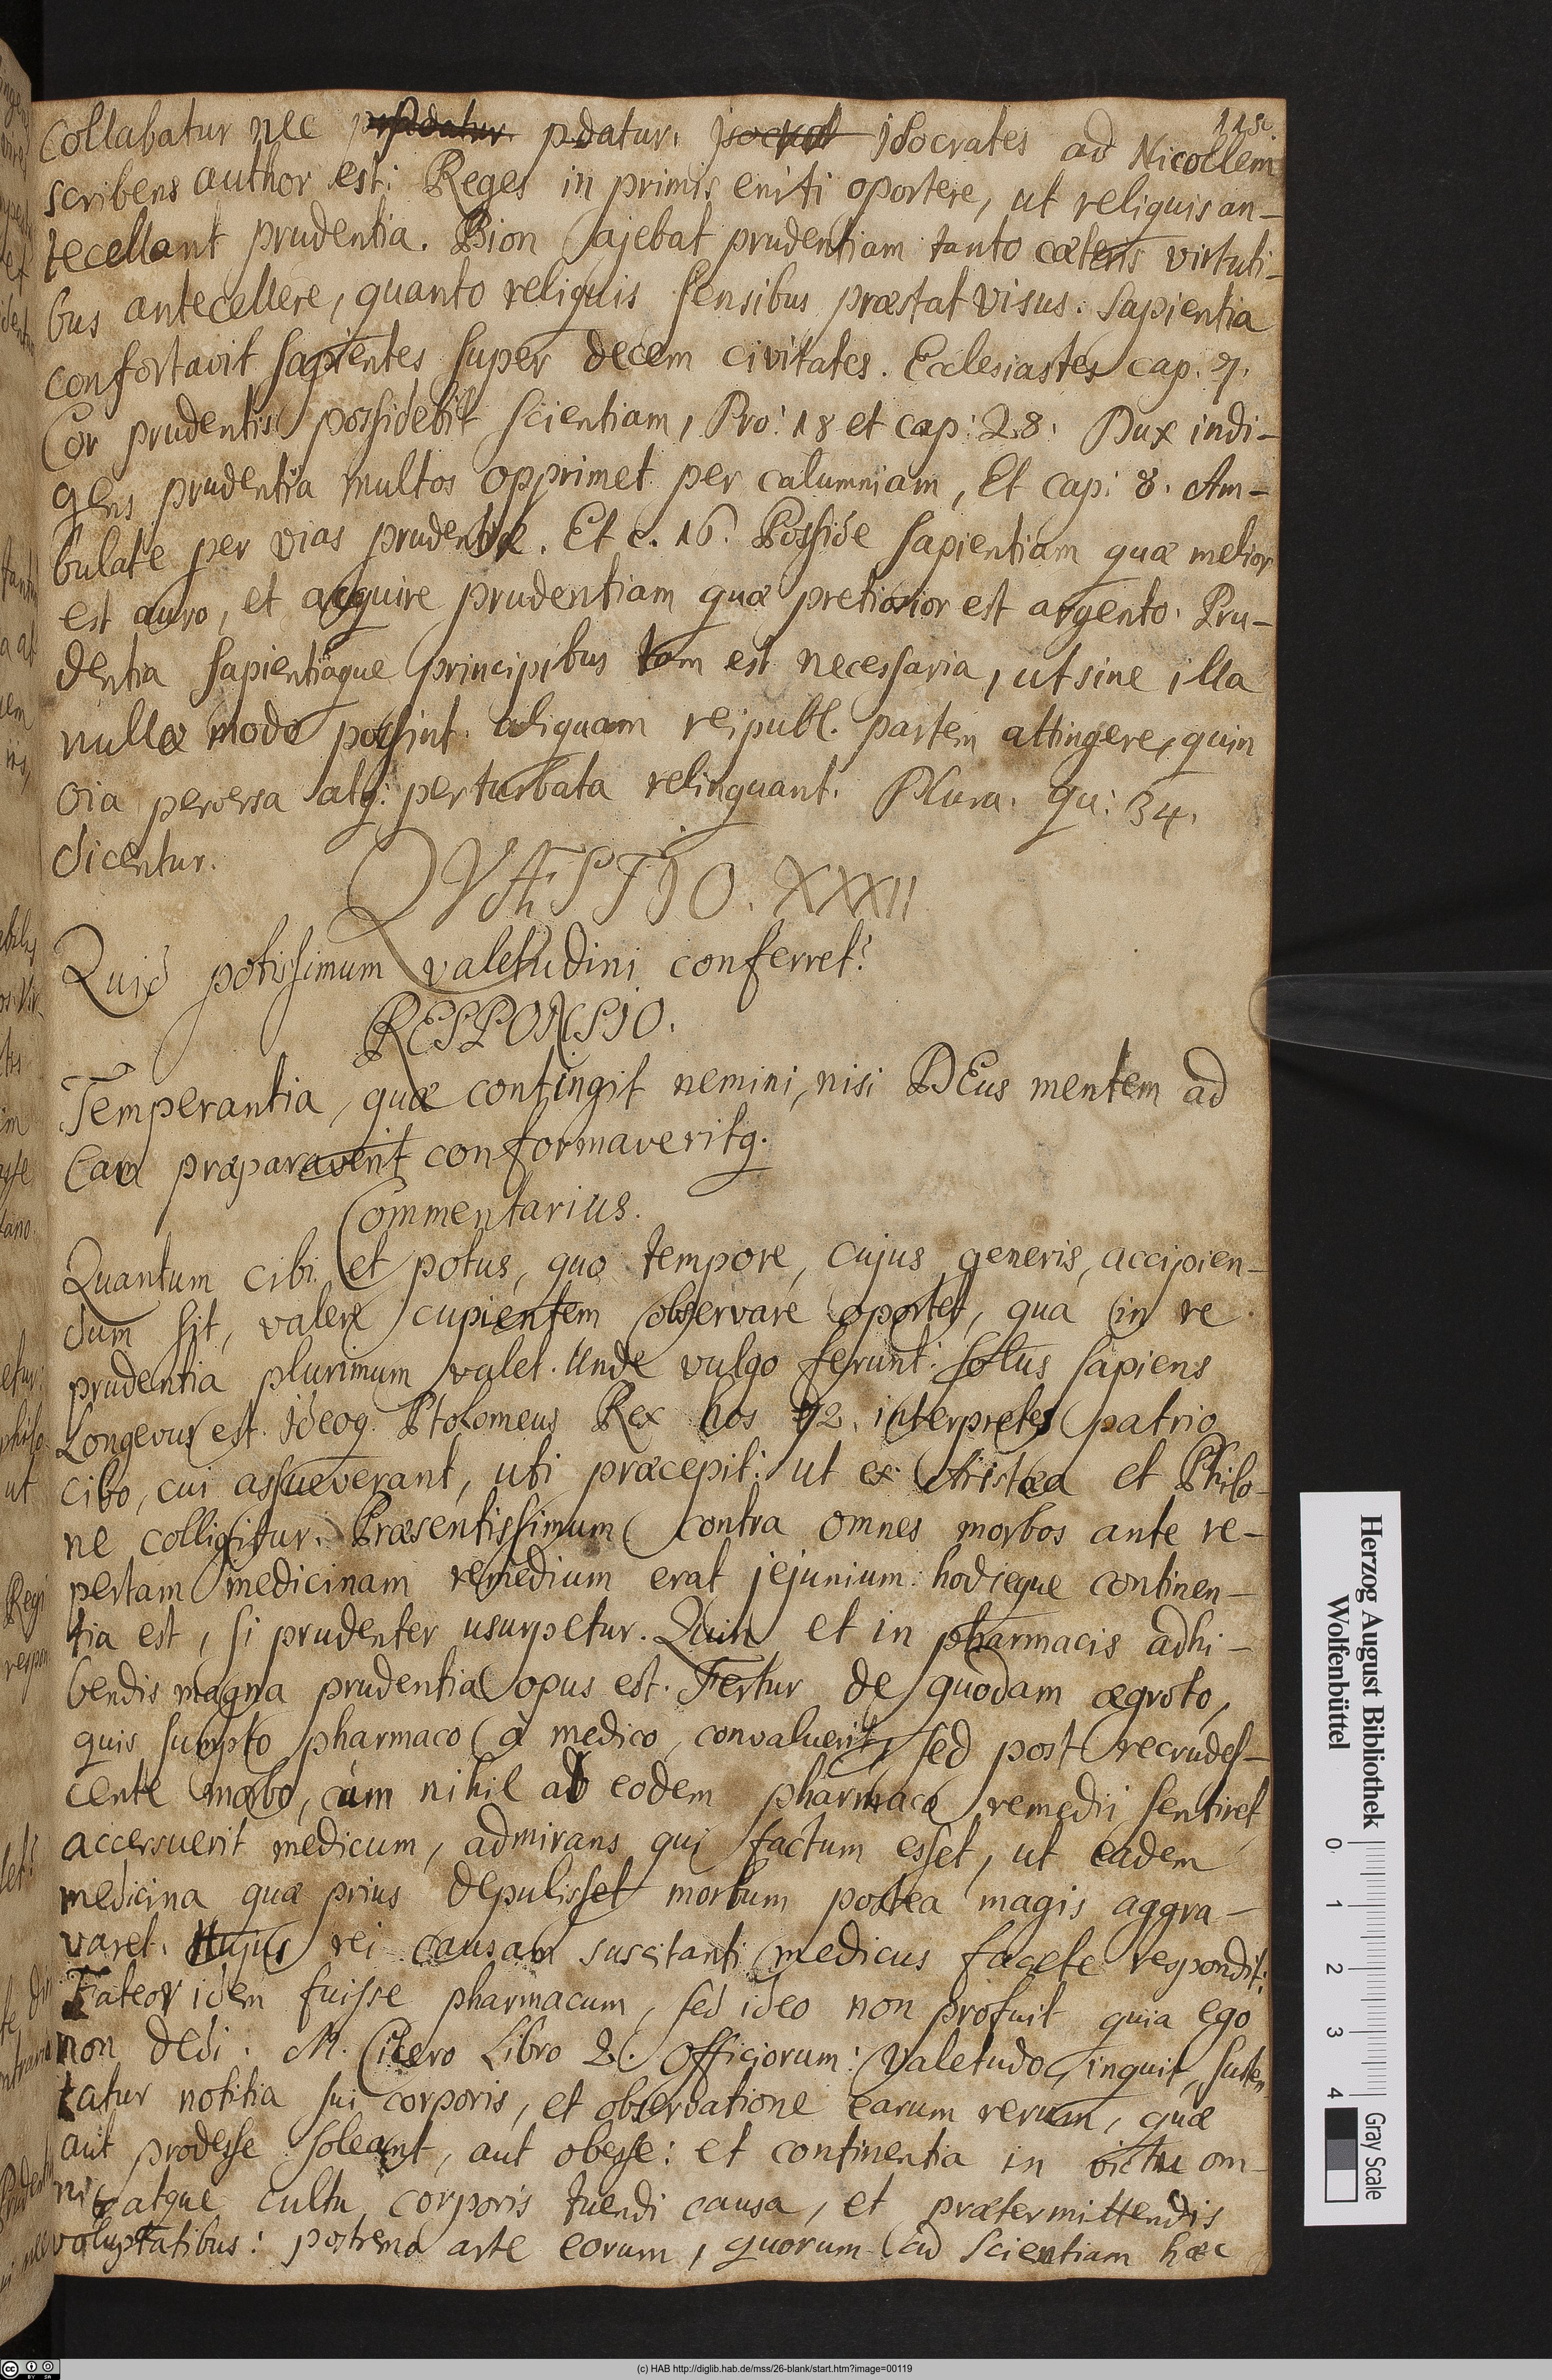 115.
Collabatur nec prodatur pdatur. jsocrat jsocrates ad Nicoclem
scribens author est: Reges in primis eniti oportere, ut reliquis an-
tecellant prudentia. Bion ajebat prudentiam tanto cæteris virtuti-
bus antecellere, quanto reliquis sensibus præstat visus. Sapientia
confortavit sapientes super decem civitates. Ecclesiastes cap. 7.
Cor prudentis possidebit scientiam, Pro: 18 et cap: 28. Dux indi-
gens prudentia multos opprimet per calumniam, Et cap: 8. Am-
bulate per vias prudentiæ. Et c. 16. Posside sapientiam quæ melior
est auro, et acquire prudentiam quæ pretiosior est argento. Pru-
dentia sapientiaque principibus tam est necessaria, ut sine illa
nullo modo possint aliquam reipubl. partem attingere, quin
oia perversa atq: perturbata relinquant. Plura. qu: 34.
dicentur.
QVÆSTJO. XXXII
Quid potissimum valetudini conferret?
RESPONSJO.
Temperantia, quæ contingit nemini, nisi DEus mentem ad
Eam præparaverit conformaveritq.
Commentarius.
Quantum cibi et potus, quo tempore, cujus generis, accipien-
dum sit, valere cupientem observare oportet, qua in re
prudentia plurimum valet. Unde vulgo ferunt: solus sapiens
Longevus est. Jdeoq. Ptolomeus Rex hos 72. interpretes patrio
cibo, cui assueverant, uti præcepit: ut ex Aristæa et Philo-
ne colligitur. Præsentissimum contra omnes morbos ante re-
pertam medicinam remedium erat jejunium: hodieque continen-
tia est, si prudenter usurpetur. Quin et in pharmacis adhi-
bendis magna prudentia opus est. Fertur de quodam ægroto,
quis sumpto pharmaco à medico, convaluerit, sed post recrudes-
cente morbo, cùm nihil ab eodem pharmaco remedii sentiret
accersuerit medicum, admirans qui factum esset, ut eadem
medicina quæ prius depulisset morbum postea magis aggra-
varet. Hujus rei causam suscitanti medicus facete respondit:
Fateor idem fuisse pharmacum, sed ideo non profuit quia ego
non dedi. M. Cicero Libro 2. Officiorum: Valetudo, inquit, susten
tatur notitia sui corporis, et observatione earum rerum, quæ
aut prodesse soleant, aut obesse: et continentia in victu om-
ni atque cultu corporis tuendi causa, et prætermittendis
voluptatibus: postremo arte eorum, quorum ad scientiam hæc
Herzog August Bibliothek
Wolfenbüttel
0 1 2 3 4
Gray Scale
(c) HAB http://diglib.hab.de/mss/26-blank/start.htm?image=00119